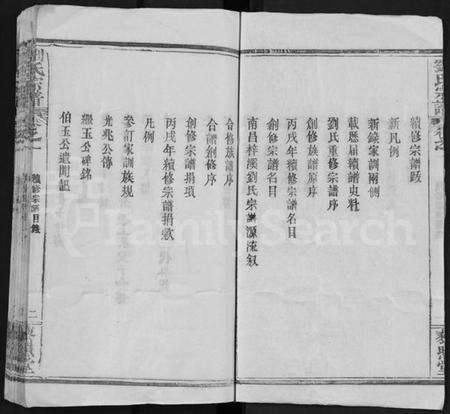 劉氏宗譜
續修宗譜跋
新凡例
新錄家訓兩側
載歷屆續譜史料
劉氏重修宗譜序
創修族譜原序
丙戌年續修宗譜名目
創修宗譜名目
南昌梓溪劉氏宗譜源流敘
合修族譜序
合譜創修序
創修宗譜捐項
丙戌年續修宗譜捐款
凡例
參訂家訓族規
光兆公傳
公碑銘
伯玉公遺聞
續修宗譜目錄
二
劉氏宗譜
FamilySearch